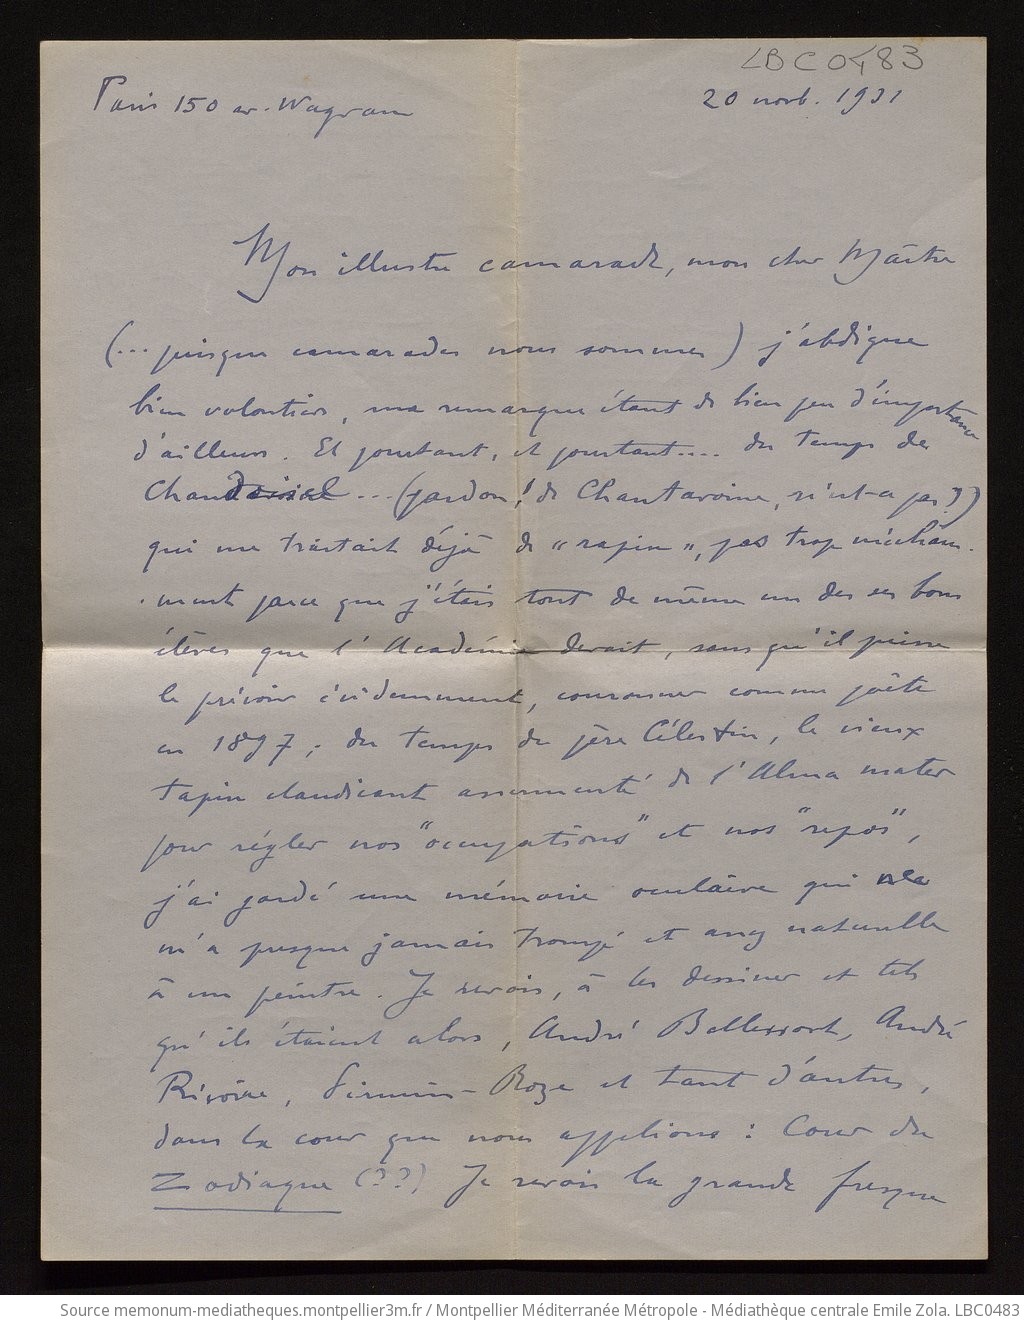 LBC0483
Paris 150 av. Wagram
20 novb. 1931
Mon illustre camarade, mon cher Maître
(... puisque camarades nous sommes) j'abdique
bien volontiers, ma remarque étant de bien peu d'importance
d'ailleurs. Et pourtant, et pourtant.... du temps de
Chan ... (pardon! de Chantavoine, n'est-ce pas?)
qui me traitait déjà de "rapin", pas trop mécham-
-ment parce que j'étais tout de même un des ses bons
élèves que l'Académie devait, sans qu'il puisse
le prévoir évidemment, couronner comme poète
en 1897; du temps du père Célestin, le vieux
tapin claudicant assermenté de l'Alma mater
pour régler nos "occupations" et nos "repos",
j'ai gardé une mémoire oculaire qui ne
m'a presque jamais trompé et assez naturelle
à un peintre. Je revois, à les dessiner et tels
qu'ils étaient alors, André Bellessort, André
Rivoire, Firmin-Roze et tant d'autres,
dans la cour que nous appelions: Cour du
Zodiaque (??) Je revois la grande fresque
Source memonum-mediatheques.montpellier3m.fr / Montpellier Méditerranée Métropole - Médiathèque centrale Emile Zola. LBC0483